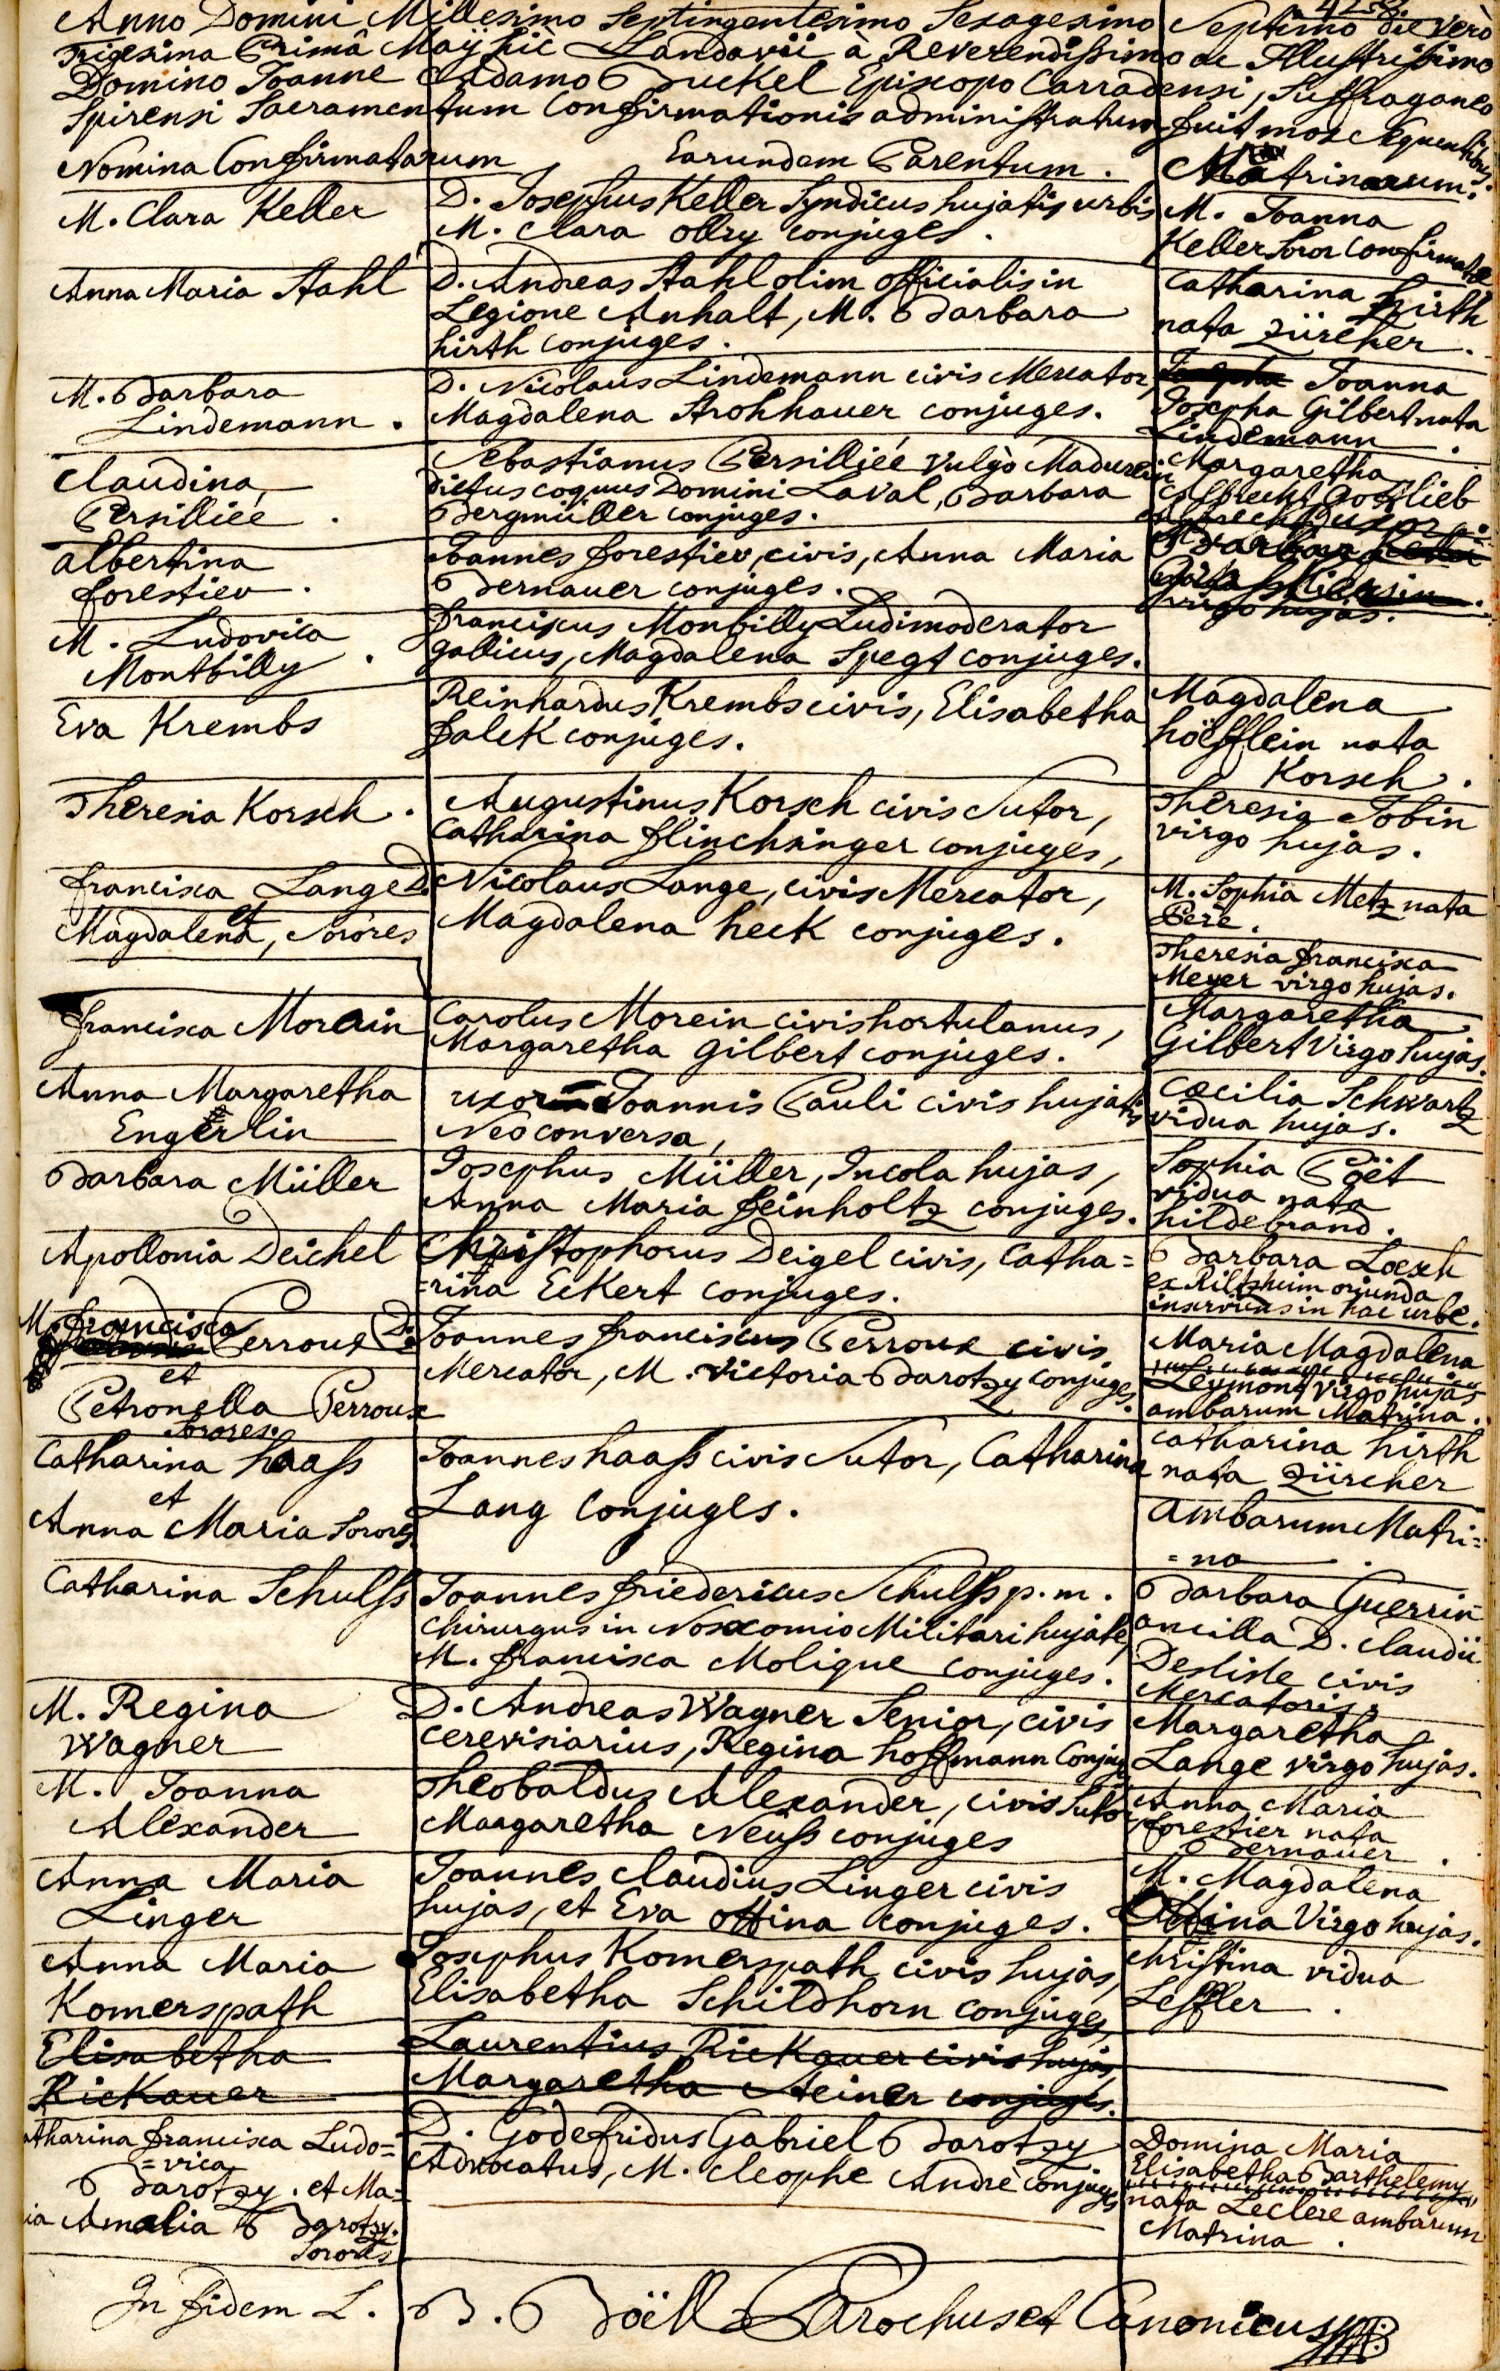 Anno Domini Millesimo Septingentesimo Sexagesimo Septimo die verò
trigesima Primâ Maÿ hic Landavii à Reverendissimo ac Illustrissimo
Domino Joanne Adamo Buckel Episcopo Carradensi, Suffraganeo
Spirensi Sacramentum Confirmationis administratum fuit mox sequentibus.
Nomina Confirmatarum
Earundem Parentum.
Matrinarum.
M. Clara Keller
D. Josephus Keller Syndicus hujatis urbis
M. Clara ollry conjuges.
M. Joanna
Keller soror Confirmatae
Anna Maria Stahl
D. Andreas Stahl olim officialis in
Legione Anhalt, M. Barbara
hirth conjuges.
Catharina hirth
nata züricher.
M. Barbara
Lindemann.
D. Nicolaus Lindemann civis Mercator,
Magdalena Strohhauer conjuges.
Josepha Joanna
Josepha Gilbert nata
Lindemann.
Claudina
Persilliée.
Sebastianus Persilliée vulgò Madurein
dictus coquus Domini Laval, Barbara
Bergmüller conjuges.
Margaretha
Albrecht Gottlieb
albertina
forestier.
Joannes forestier, civis, Anna Maria
Bernauer conjuges.
Barbara
virgo hujas.
M. Ludovica
Montbilly.
franciscus Monbilly Ludimoderator
gallicus, Magdalena Spegt conjuges.
Eva Krembs
Reinhardus Krembs civis, Elisabetha
falck conjuges.
Magdalena
höfflein nata
Korsch.
Theresia Korsch.
Augustinus Korsch civis Sutor,
Catharina flinchinger conjuges,
Theresia Tobin
virgo hujas.
francisca Lange D.
et
Magdalena, Sorores
Nicolaus Lange, civis Mercator,
Magdalena heck conjuges.
M. Sophia Metz nata
Peré.
Theresia francisca
Meyer virgo hujas.
francisca Morain
Carolus Morein civis hortulanus,
Margaretha gilbert conjuges.
Margaretha
Gilbert Virgo hujas.
Anna Margaretha
Engerlin
uxor Joannis Pauli civis hujatis
Neoconversa,
Cæcilia Schwartz
vidua hujas.
Barbara Müller
Josephus Müller, Incola hujas,
Anna Maria feinholtz conjuges.
Sophia Pöët
vidua nata
hildebrand.
Apollonia Deichel
Christophorus Deigel civis, Catha=
=rina Eckert conjuges.
Barbara Loesch
ex Riltzheim oriunda
inserviens in hac urbe.
M. francisca
Perroux D.
et
Petronella Perroux
Sorores.
Joannes franciscus Perroux civis
Mercator, M. victoria Barotzy conjuges.
Maria Magdalena
Leymont virgo hujas
ambarum Matrina.
Catharina haass
et
Anna Maria Sorores
Joannes haass civis Sutor, Catharina
Lang conjuges.
catharina hirth
nata züricher
ambarum Matri=
=na.
Catharina Schulss
Joannes friedericus Schulss p. m.
Chirurgus in Nosocomio Militari hujate,
M. francisca Molique conjuges.
Barbara Guerrin
ancilla D. Claudii
Deslisle civis
Mercatoris.
M. Regina
Wagner
D. Andreas Wagner Senior, civis
cerevisiarius, Regina hoffmann Conjug
Margaretha
Lange virgo hujas.
M. Joanna
Alexander
Theobaldus Alexander, civis Sutor
Margaretha Neuss conjuges
Anna Maria
forestier nata
Bernauer.
Anna Maria
Linger
Joannes Claudius Linger civis
hujas, et Eva ottina conjuges.
M. Magdalena
Ottina Virgo hujas.
Anna Maria
Komerspath
Josephus Komerspath civis hujas,
Elisabetha Schildhorn conjuges,
Christina vidua
Leffler.
Elisabetha
Rickauer
Laurentius Rickauer civis hujas,
Margaretha Steiner conjuges.
atharina francisca Ludo=
=vica
Barotzy. et Ma=
ia Amalia Barotzy.
Sorores
D. Godefridus Gabriel Barotzy
Advocatus, M. Cleophe André conjuges
Domina Maria
Elisabetha Barthelemy,
nata Leclere ambarum
Matrina.
In fidem L. B. Böell Parochus et Canonicus